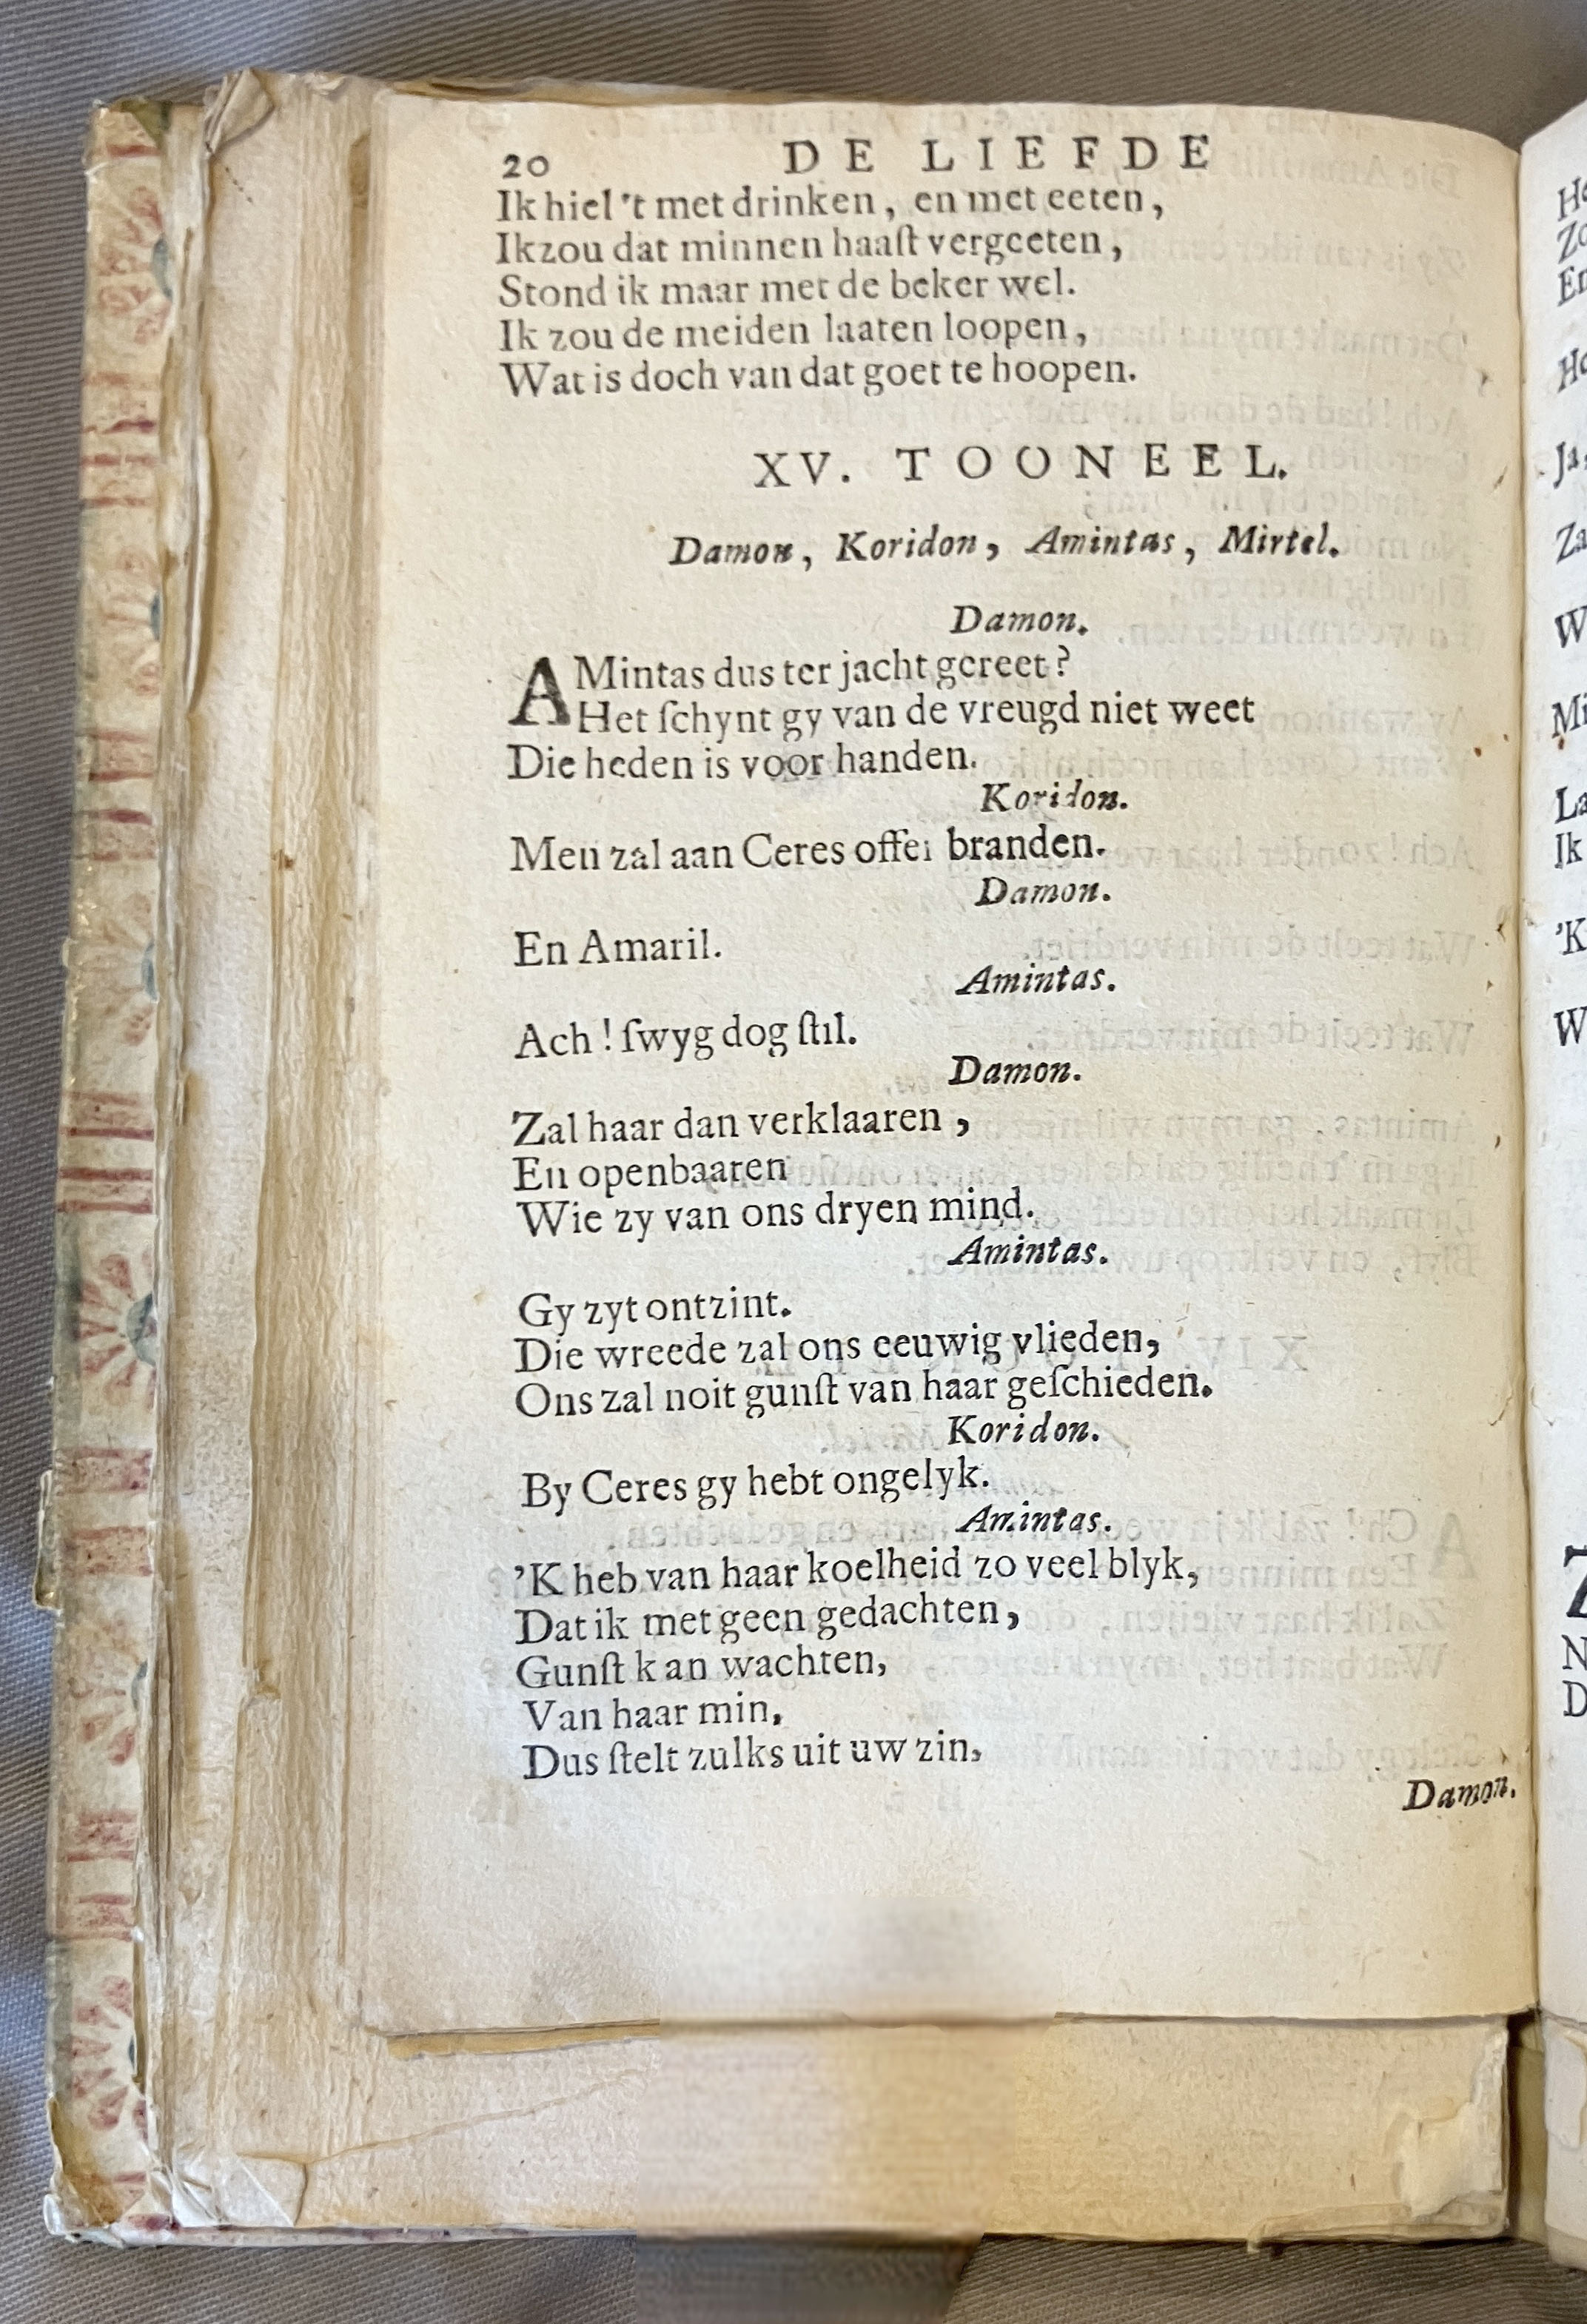 20 DE LIEFDE
Ik hiel 't met drinken, en met eeten,
Ik zou dat minnen haaſt vergeeten,
Stond ik maar met de beker wel.
Ik zou de meiden laaten loopen,
Wat is doch van dat goet te hoopen.
XV. TOONEEL.
Damon, Koridon, Amintas, Mirtel.
Damon.
AMintas dus ter jacht gereet?
Het ſchynt gy van de vreugd niet weet
Die heden is voor handen.
Koridon.
Men zal aan Ceres offer branden.
Damon.
En Amaril.
Amintas.
Ach! ſwyg dog ſtil.
Damon.
Zal haar dan verklaaren,
En openbaaren
Wie zy van ons dryen mind.
Amintas.
Gy zyt ontzint.
Die wreede zal ons eeuwig vlieden,
Ons zal noit gunſt van haar geſchieden.
Koridon.
By Ceres gy hebt ongelyk.
Amintas.
'K heb van haar koelheid zo veel blyk,
Dat ik met geen gedachten,
Gunſt kan wachten,
Van haar min,
Dus ſtelt zulks uit uw zin,
Damon.